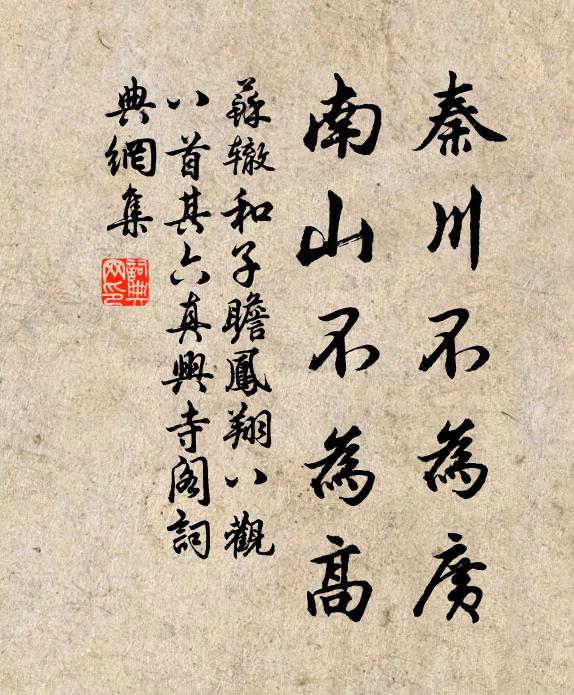 秦川不為廣
南山不為高
蘇轍和子瞻鳳翔八觀
八首其六真興寺閣詞
典網集
詞典
网印